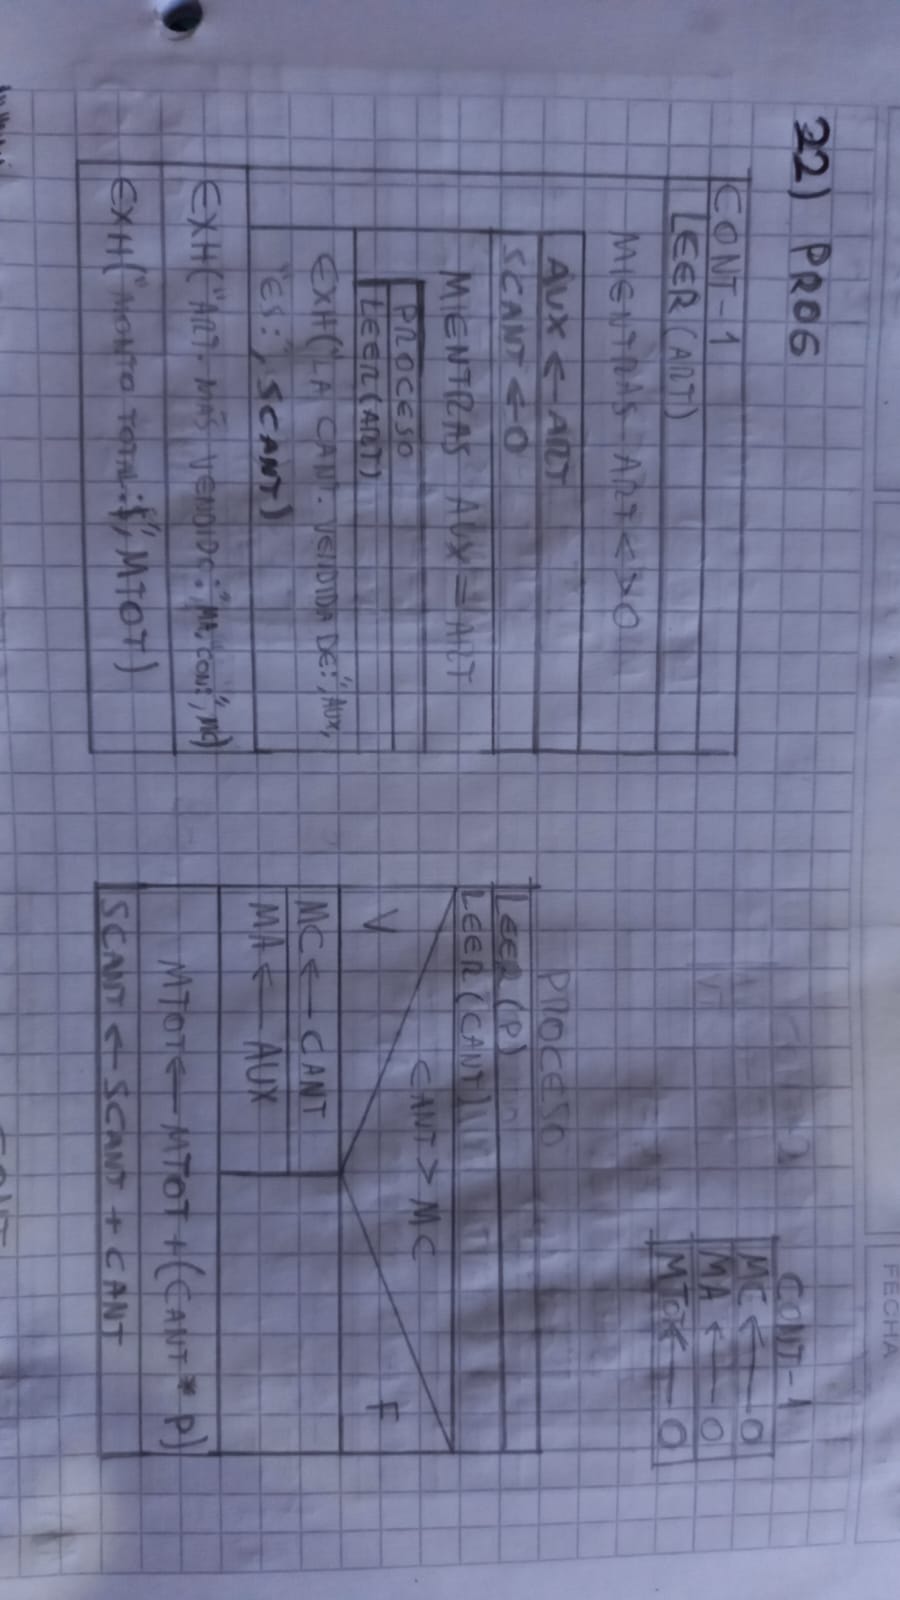 FECHA
22) PROG
CONT-1
LEER (ART)
MIENTRAS ART <> 0
AUX ← ART
SCANT ← 0
MIENTRAS AUX = ART
PROCESO
LEER (ART)
EXH("LA CANT. VENDIDA DE:", AUX,
"ES:", SCANT)
EXH("ART. MAS VENDIDO:" MA, "CON:", MC)
EXH("MONTO TOTAL:$", MTOT)
CONT-1
MC ← 0
MA ← 0
MTOT ← 0
PROCESO
LEER (P)
LEER (CANT)
CANT > MC
V F
MC ← CANT
MA ← AUX
MTOT ← MTOT + (CANT * P)
SCANT ← SCANT + CANT
CONT